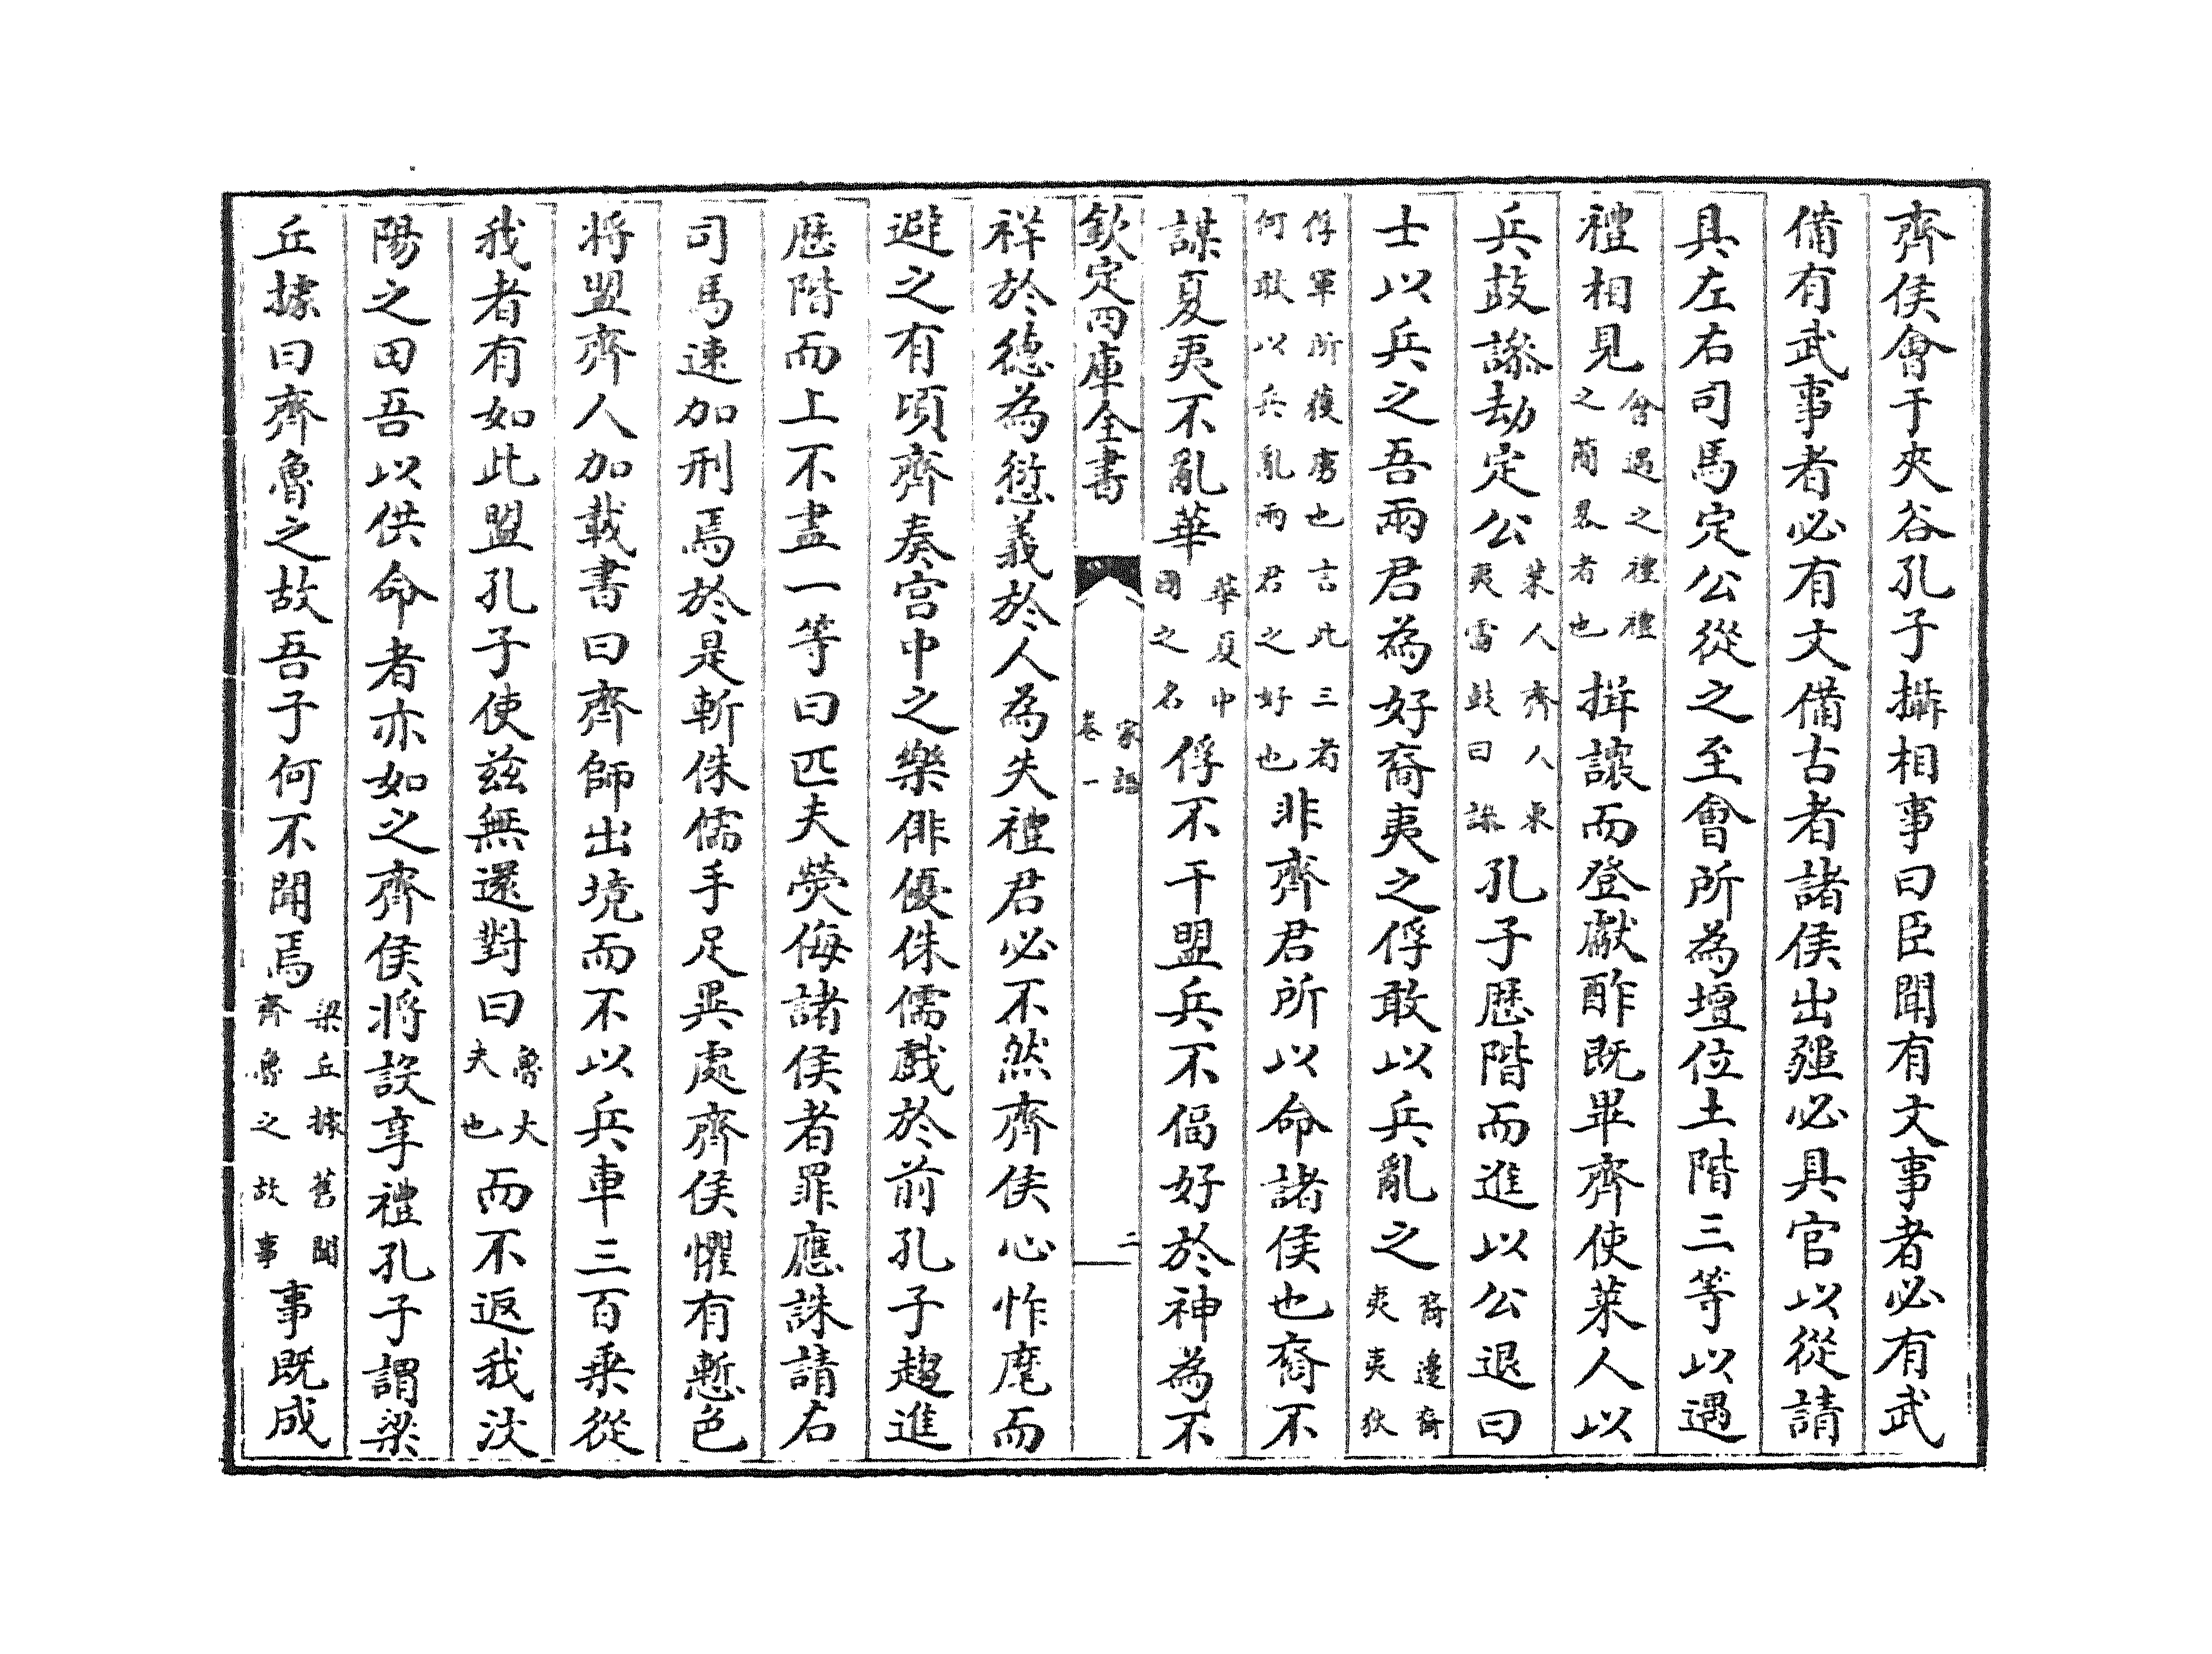 齊侯會于夾谷孔子攝相事曰臣聞有文事者必有武
備有武事者必有文備古者諸侯出疆必具官以從請
具左右司馬定公從之至會所為壇位土階三等以遇
禮相見會遇之禮禮之簡畧者也揖讓而登獻酢既畢齊使萊人以
兵鼓譟劫定公萊人齊人東夷雷鼓曰譟孔子歷階而進以公退曰
士以兵之吾兩君為好裔夷之俘敢以兵亂之裔邊裔夷夷狄
俘軍所獲虜也言此三者何敢以兵亂兩君之好也非齊君所以命諸侯也裔不
謀夏夷不亂華華夏中國之名俘不干盟兵不偪好於神為不
欽定四庫全書 家語 卷一 二
祥於德為愆義於人為失禮君必不然齊侯心怍麾而
避之有頃齊奏宫中之樂俳優侏儒戲於前孔子趨進
歷階而上不盡一等曰匹夫熒侮諸侯者罪應誅請右
司馬速加刑焉於是斬侏儒手足異處齊侯懼有慙色
將盟齊人加載書曰齊師出境而不以兵車三百乗從
我者有如此盟孔子使兹無還對曰魯大夫也而不返我汶
陽之田吾以供命者亦如之齊侯將設享禮孔子謂梁
丘據曰齊魯之故吾子何不聞焉梁丘據舊聞齊魯之故事事既成